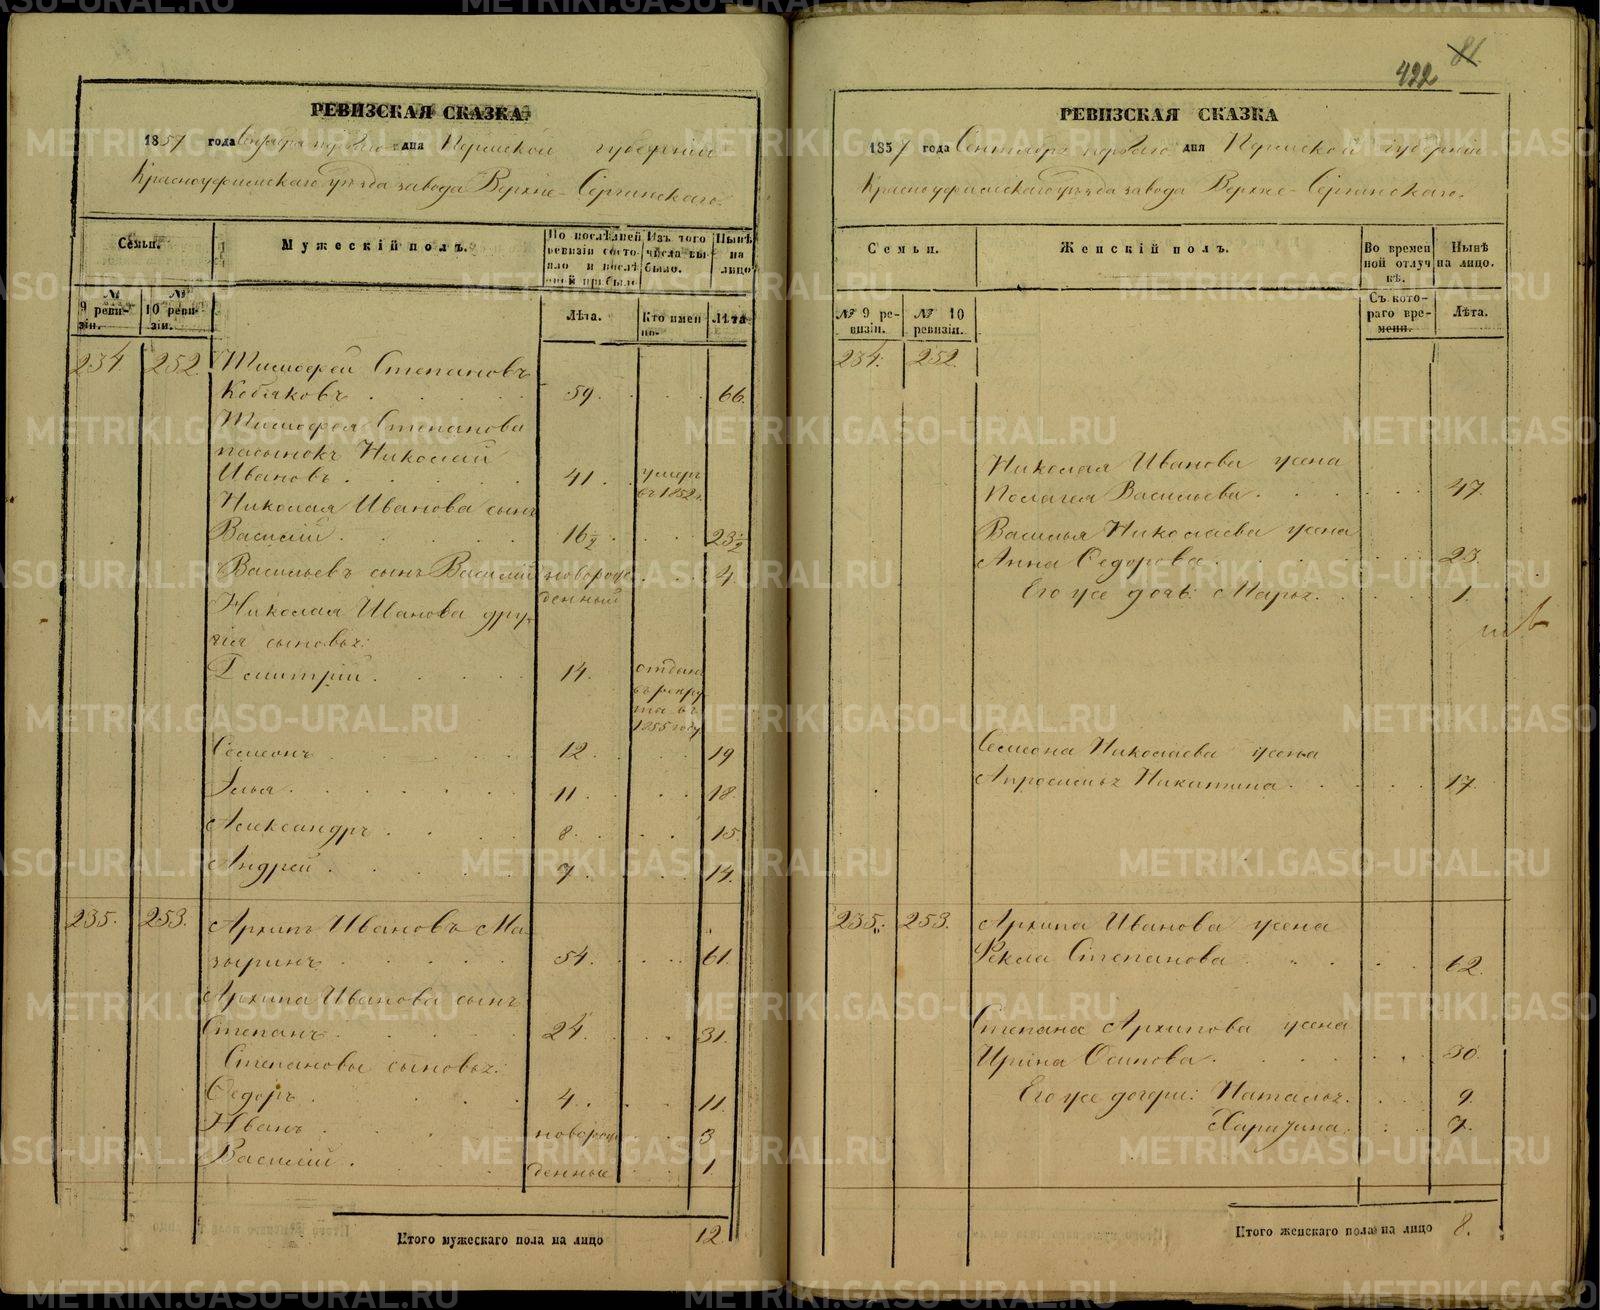 РЕВИЗСКАЯ СКАЗКА
1857 года Сентября перваго дня Пермской губернiи
Красноуфимскаго уѣзда завода Верхне-Сергинскаго.
Семьи.
Мужескiй полъ.
По послѣдней ревизiи состояло и послѣ оной прибыло
Изъ того числа выбыло.
Нынѣ на лицо
№ 9 ревизiи.
№ 10 ревизiи.
Лѣта.
Кто именно.
Лѣта
234. 252. Тимофей Степановъ
Кобяковъ . . . . 59. . . . 66.
Тимофея Степанова
пасынокъ Николай
Ивановъ . . . . 41 . . умеръ въ 1852 г.
Николая Иванова сынъ
Василiй . . . . 16½ . . . 23½
Васильевъ сынъ Василiй новорожденный . . . 4.
Николая Иванова другiя сыновья:
Дмитрiй . . . . 14. отданъ въ рекрута въ 1855 году
Семеонъ . . . . 12. . . . 19
Илья . . . . 11. . . . 18.
Александръ . . . . 8. . . . 15
Андрей . . . . 7 . . . 14.
235. 253. Архипъ Ивановъ Ма
зыринъ . . . . 54. . . . 61.
Архипа Иванова сынъ
Степанъ . . . . 24 . . . 31.
Степановы сыновья:
Федоръ . . . . 4. . . . 11.
Иванъ . . . . новорож . . 3
Василiй . . . . денные . . 1
Итого мужескаго пола на лицо 12.
422 81
РЕВИЗСКАЯ СКАЗКА
1857 года Сентября перваго дня Пермской губернiи
Красноуфимскаго уѣзда завода Верхне-Сергинскаго.
Семьи.
Женскiй полъ.
Во временной отлучкѣ.
Нынѣ на лицо.
№ 9 ревизiи.
№ 10 ревизiи.
Съ котораго времени.
Лѣта.
234. 252.
Николая Иванова жена
Пелагея Васильева . . . . 47.
Василья Николаева жена
Анна Федорова . . . . 23.
Его же дочь: Марья . . . . 1.
Семеона Николаева жена
Апросинья Никитина . . . . 17.
235. 253. Архипа Иванова жена
Фекла Степанова . . . . 62.
Степана Архипова жена
Ирина Осипова . . . . 30.
Его же дочери: Наталья . . . 9.
Харитина . . . 7.
Итого женскаго пола на лицо 8.
METRIKI.GASO-URAL.RU